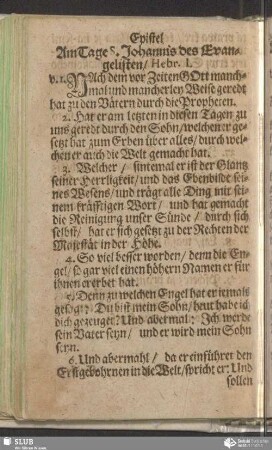 Epistel
Am Tage S. Johannis des Evan-
gelisten/ Hebr. I.
v. 1. NAch dem vor Zeiten GOtt manch-
mal und mancherley Weise geredt
hat zu den Vätern durch die Propheten.
2. Hat er am letzten in diesen Tagen zu
uns geredt durch den Sohn/ welchen er ge-
setzt hat zum Erben über alles/ durch wel-
chen er auch die Welt gemacht hat.
3. Welcher/ sintemal er ist der Glantz
seiner Herrligkeit/ und das Ebenbilde sei-
nes Wesens/ und trägt alle Ding mit sei-
nem kräfftigen Wort/ und hat gemacht
die Reinigung unser Sünde/ durch sich
selbst/ hat er sich gesetzt zu der Rechten der
Majestät in der Höhe.
4. So viel besser worden/ denn die En-
gel/ so gar viel einen höhern Namen er für
ihnen ererbet hat.
5. Denn zu welchen Engel hat er jemals
gesagt: Du bist mein Sohn/ heut habe ich
dich gezeuget? Und abermal: Ich werde
sein Vater seyn/ und er wird mein Sohn
seyn.
6. Und abermahl/ da er einführet den
Erstgebohrnen in die Welt/ spricht er: Und
sollen
SLUB